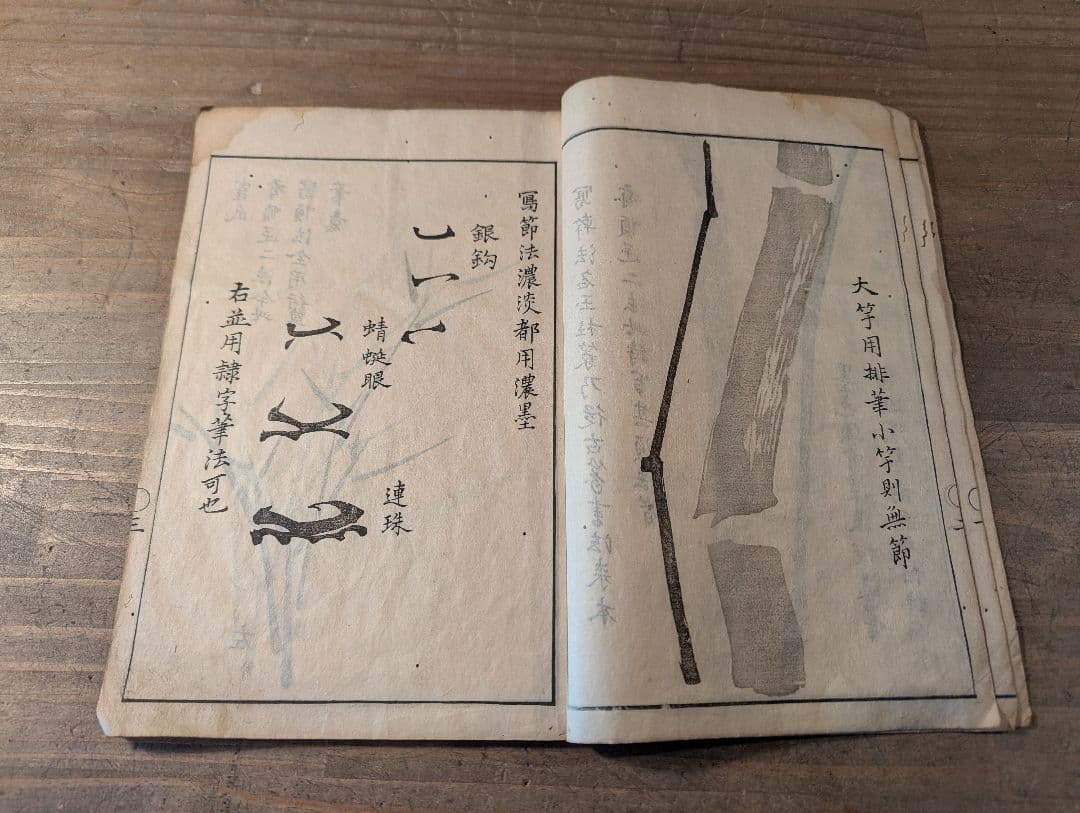 大竿用排筆小竿則無節
寫節法濃淡都用濃墨
銀鈎
蜻蜓眼
連珠
右並用隷字筆法可也
三
二